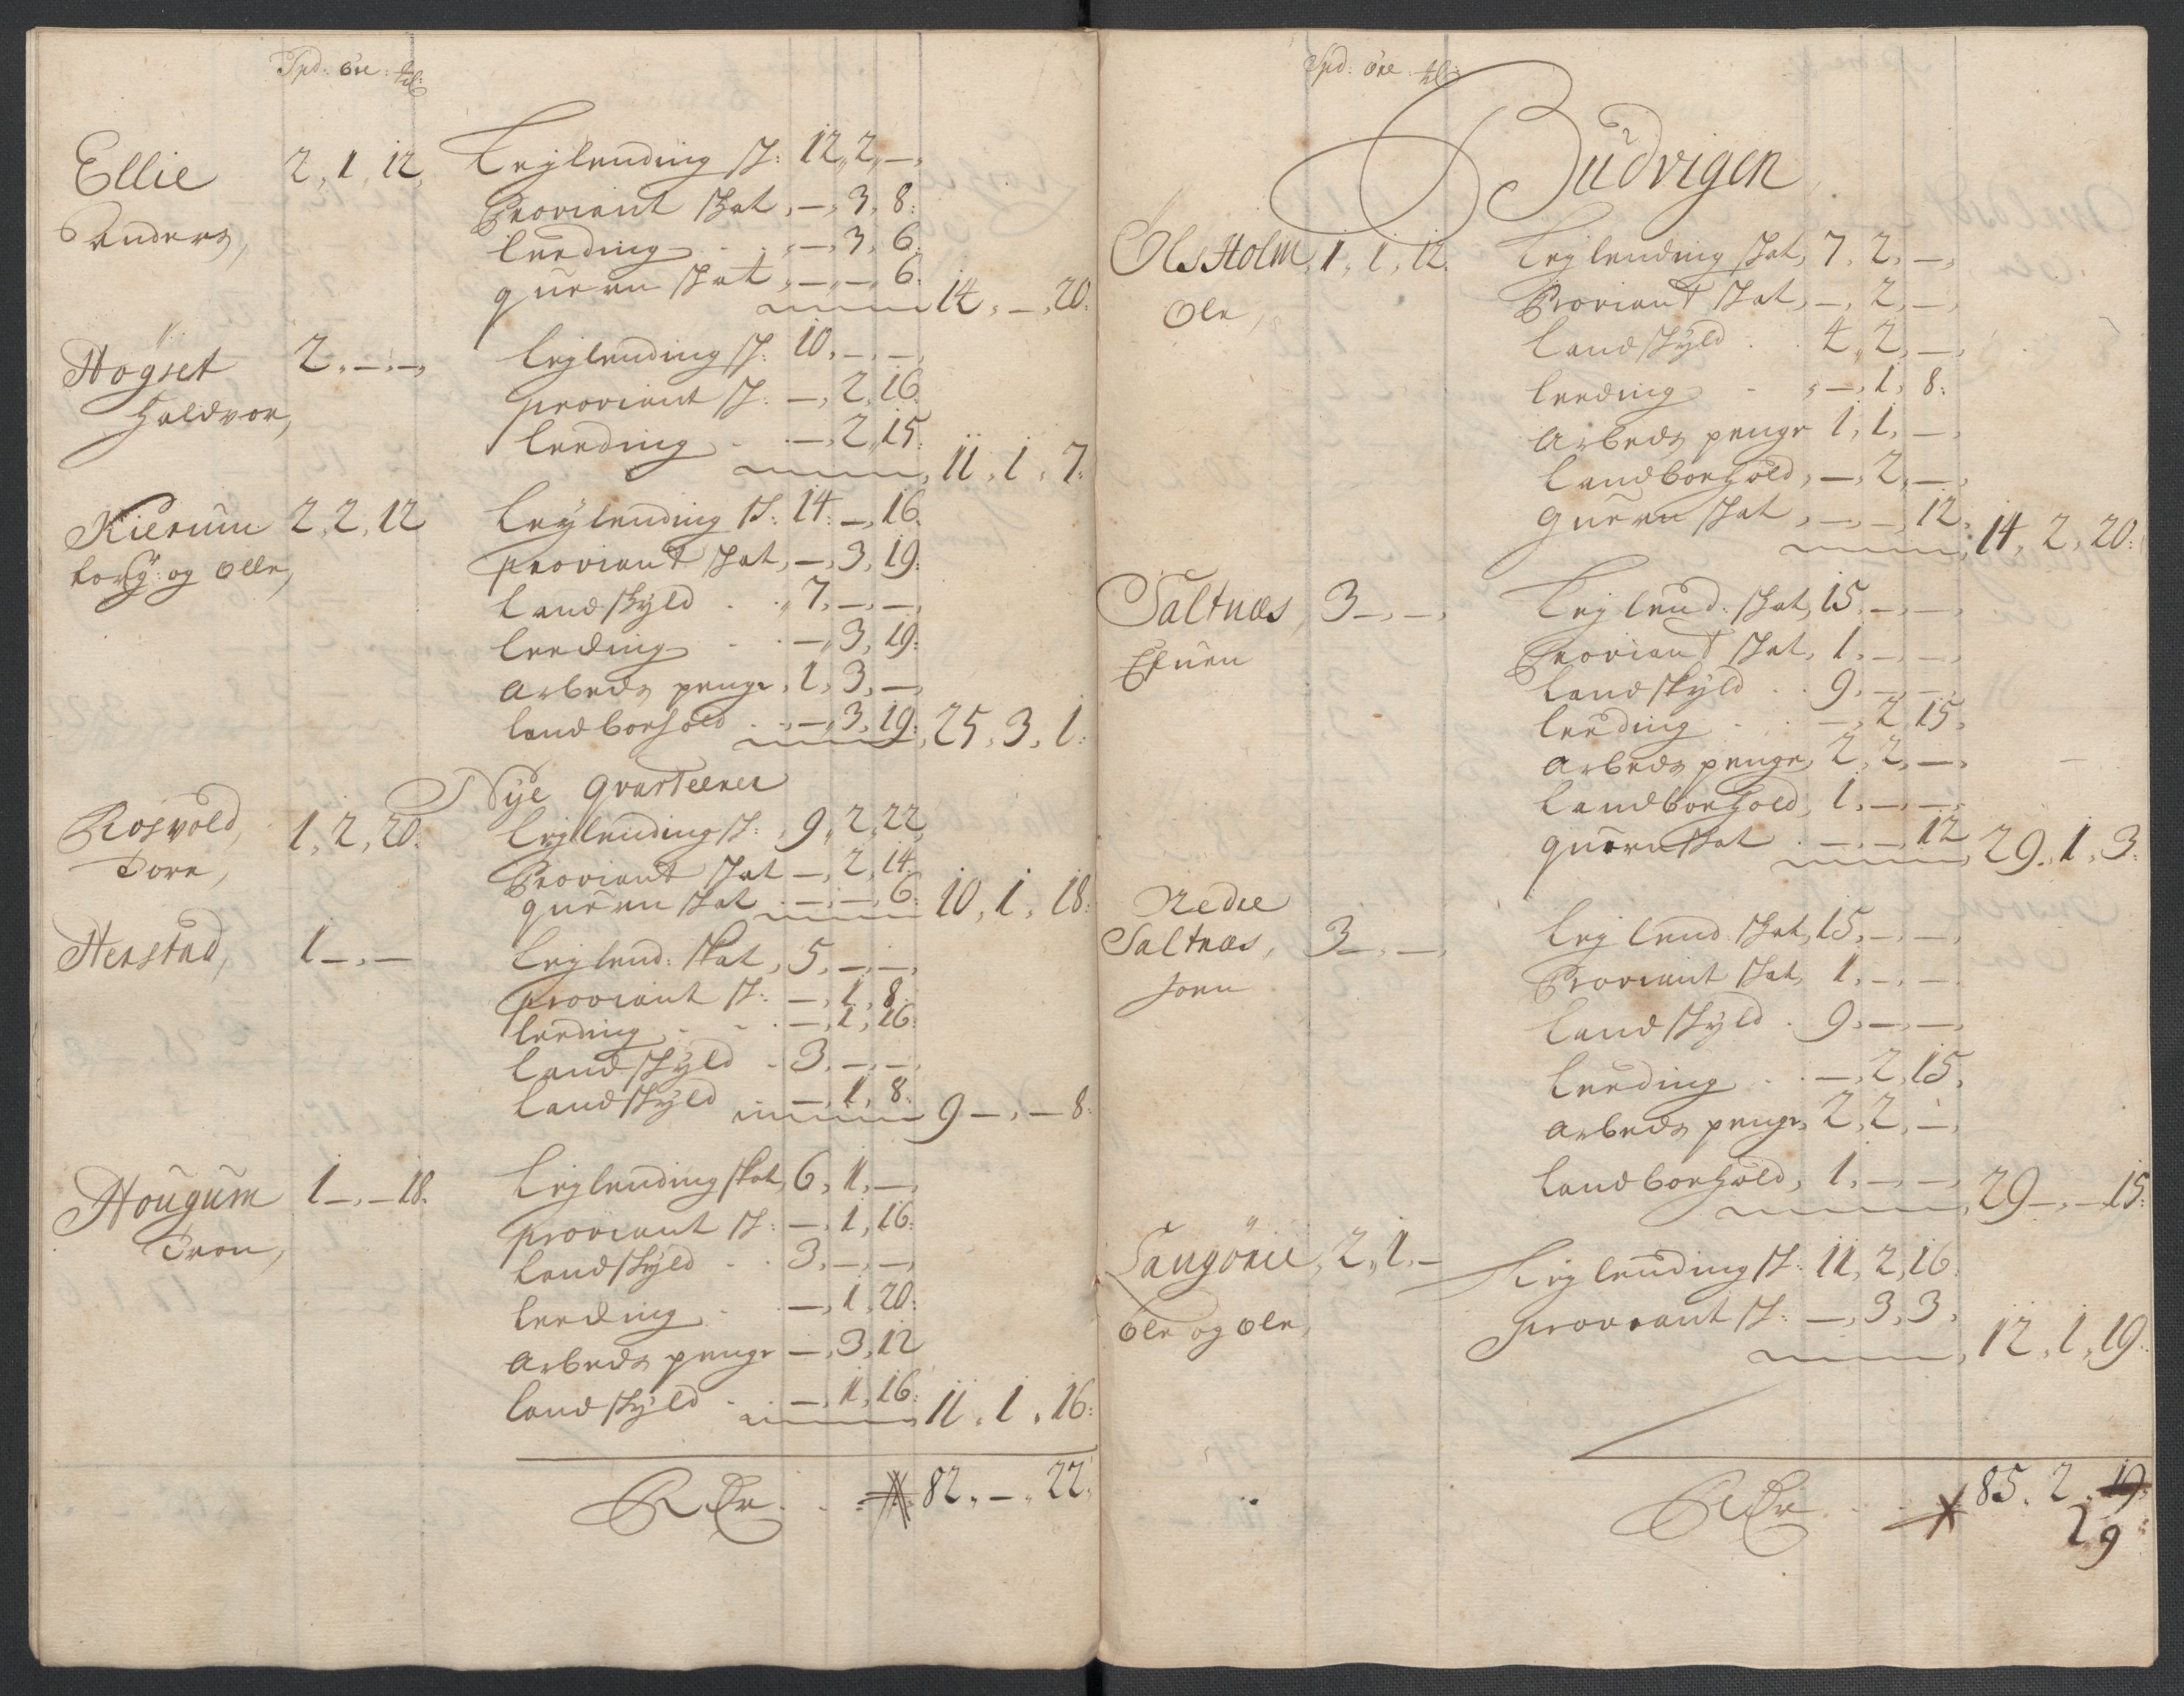 Spd: öre: ml:
Ellie 2, 1, 12, Leylending sk: 12, 2, –,
Anders, Proviant skat, –, 3, 8:
Leeding . . –, 3, 6:
quern skat, –, –, 6.
14, –, 20:
Högset 2, –, –, leylending sk: 10, –, –,
Haldvor, proviant sk: –, 2, 16.
leeding . . –, 2, 15.
11, 1, 7:
Kierum 2, 2, 12 Leylending sk: 14. –, 16.
og olle, proviant skat, –, 3, 19:
landskyld . . 7, –, –,
Leeding . –, 3, 19:
Arbeds penge, 1, 3, –,
landborhold . –, 3, 19:, 25, 3, 1:
Nye qvarteerer
Rosvold, 1, 2, 20: leylending sk: 9, 2, 22,
Tore, Proviant skat –, 2, 14.
quern skat . –, –, 6: 10, 1, 18:
Henstad, 1 –, – Leylend: skat, 5, –, –,
proviant sk: –, 1, 8:
leeding . . –, 1, 16:
Landskyld . 3, –, –,
Landskyld . –, 1, 8: 9 –, – 8:
Hougum 1 –, – 18. Leylending skat, 6, 1, –,
Tron, proviant sk: –, 1, 16:
Landskyld . . 3, –, –,
Leeding . . –, 1, 20:
Arbeds penge –, 3, 12
Landskyld . . –, 1, 16: 11, 1, 16:
82, –, 22:
Spd: öre: ml:
Budvigen
Ols Holm, 1, 1, 12. Leylending skat, 7, 2, –,
Ole, Proviant skat, –, 2, –,
Landskyld . . 4, 2, –,
leeding . , –, 1, 8:
Arbeds penge 1, 1, –,
Landborhold, –, 2, –,
quern skat, –, –, 12,
14, 2, 20:
Saltnæs, 3 –, –, Leylend: skat, 15, –, –,
Efuen Proviant skat, 1, –, –,
Landskyld . . 9, –, –,
leeding . . –, 2, 15,
Arbeds penge, 2, 2, –,
Landborhold, 1, –, –,
quern skat . –, –, 12 29, 1, 3:
Nedre
Saltnæs, 3 –, –, Leylend skat, 15, –, –,
Jorn Proviant skat, 1, –, –
Landskyld . 9, –, –,
Leeding . . –, 2, 15,
Arbeds penge, 2, 2, –,
Landborhold, 1, –, –, 29 –, – 15:
Sangörie, 2, 1, – Leylending sk: 11, 2, 16.
Ole og Ole, proviant sk: –, 3, 3,
12, 1, 19.
85, 2, 19:
29: